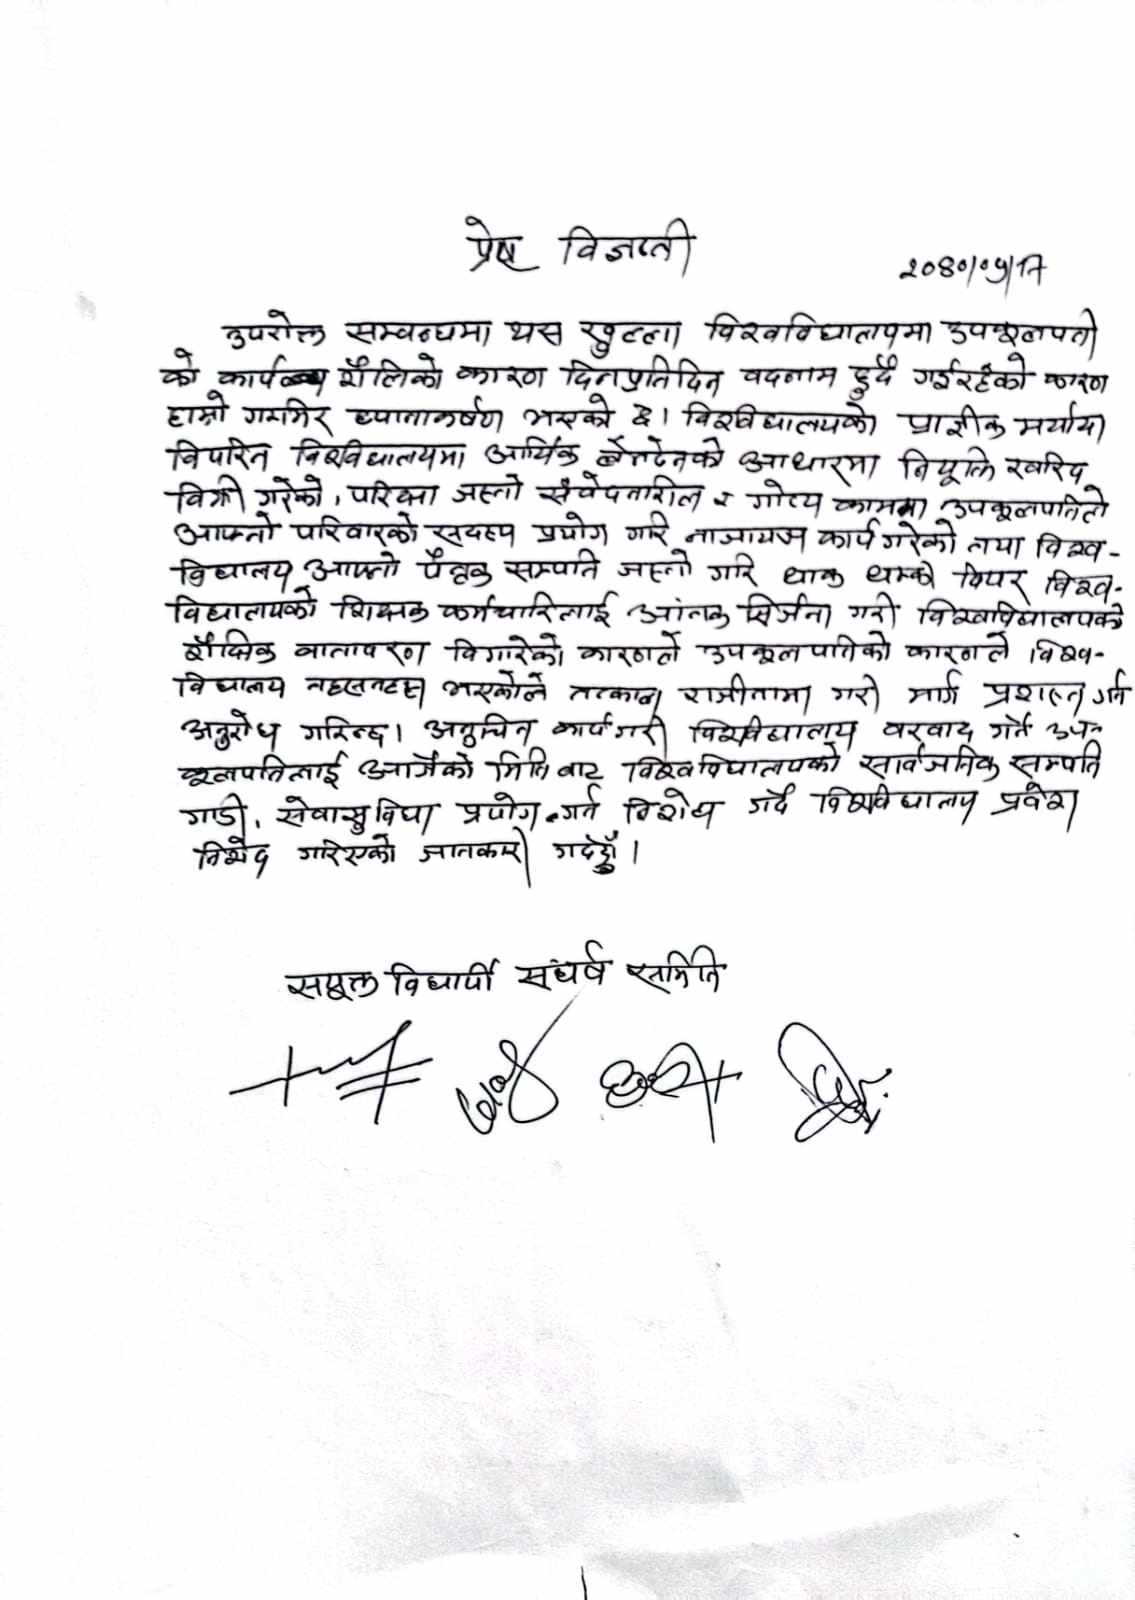 प्रेष विज्ञप्ती
२०८०/०५/१७
उपरोक्त सम्वन्धमा यस खुल्ला विश्वविद्यालयमा उपकूलपती
को कार्य शैलिको कारण दिनप्रतिदिन वदनाम हुदै गईरहेको कारण
हाम्रो गम्भिर ध्यानाकर्षण भएको छ। विश्वविद्यालयको प्राज्ञीक मर्यादा
विपरित विश्वविद्यालयमा आर्थिक लेनदेनको आधारमा नियुक्ति खरिद
विक्री गरेको, परिक्षा जस्तो संवेदनशील र गोप्य काममा उपकूलपतिले
आफ्नो परिवारको सदस्य प्रयोग गरि नाजायज कार्य गरेको तथा विश्व-
विद्यालय आफ्नो पैतृक सम्पति जस्तो गरि धाक धम्की दिएर विश्व-
विद्यालयको शिक्षक कर्मचारिलाई आंतक सिर्जना गरी विश्वविद्यालयको
शैक्षिक वातावरण विगारेको कारणले उपकूलपतिको कारणले विश्व-
विद्यालय तहसनहस भएकोले तत्काल राजीनामा गरी मार्ग प्रशस्त गर्न
अनुरोध गरिन्छ। अनुचित कार्य गरी विश्वविद्यालय वरवाद गर्ने उप-
कूलपतिलाई आजैको मिति बाट विश्वविद्यालयको सार्वजनिक सम्पति
गाडी, सेवासुविधा प्रयोग गर्न विरोध गर्दै विश्वविद्यालय प्रवेश
निषेद गरिएको जानकारी गर्दछौं।
संयुक्त विद्यार्थी संघर्ष समिति